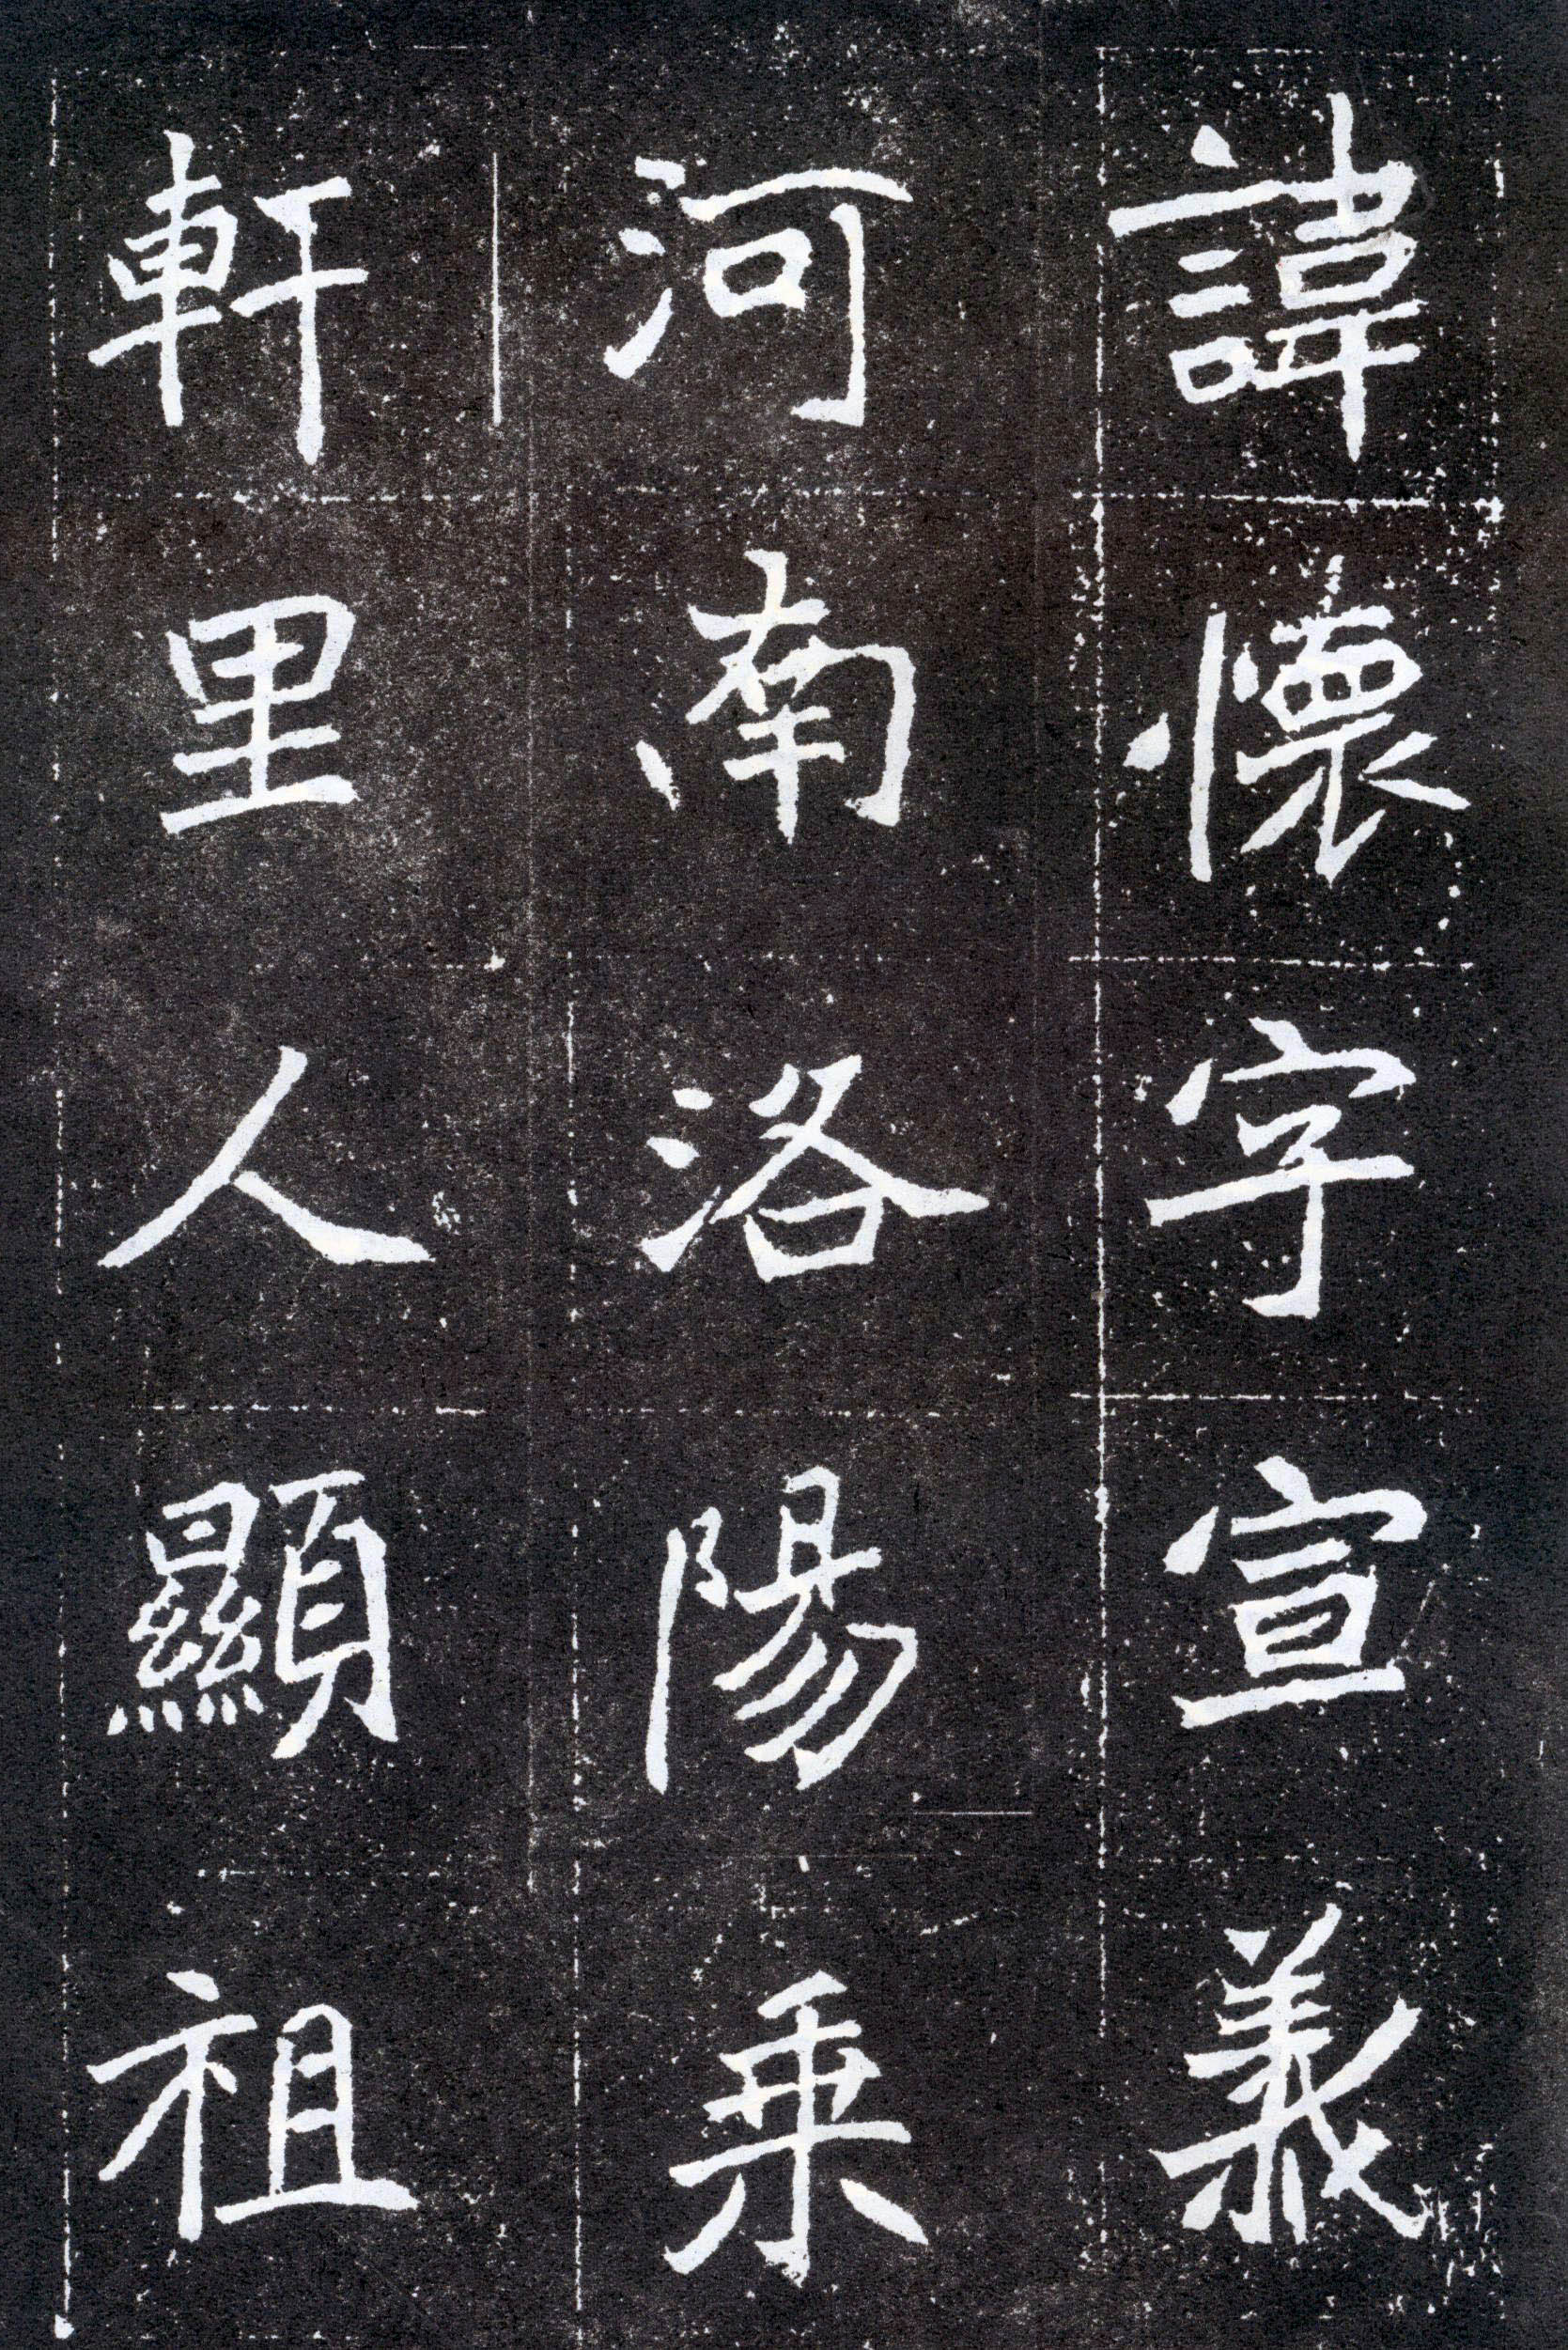 諱懷字宣義
河南洛陽乗
軒里人顯祖